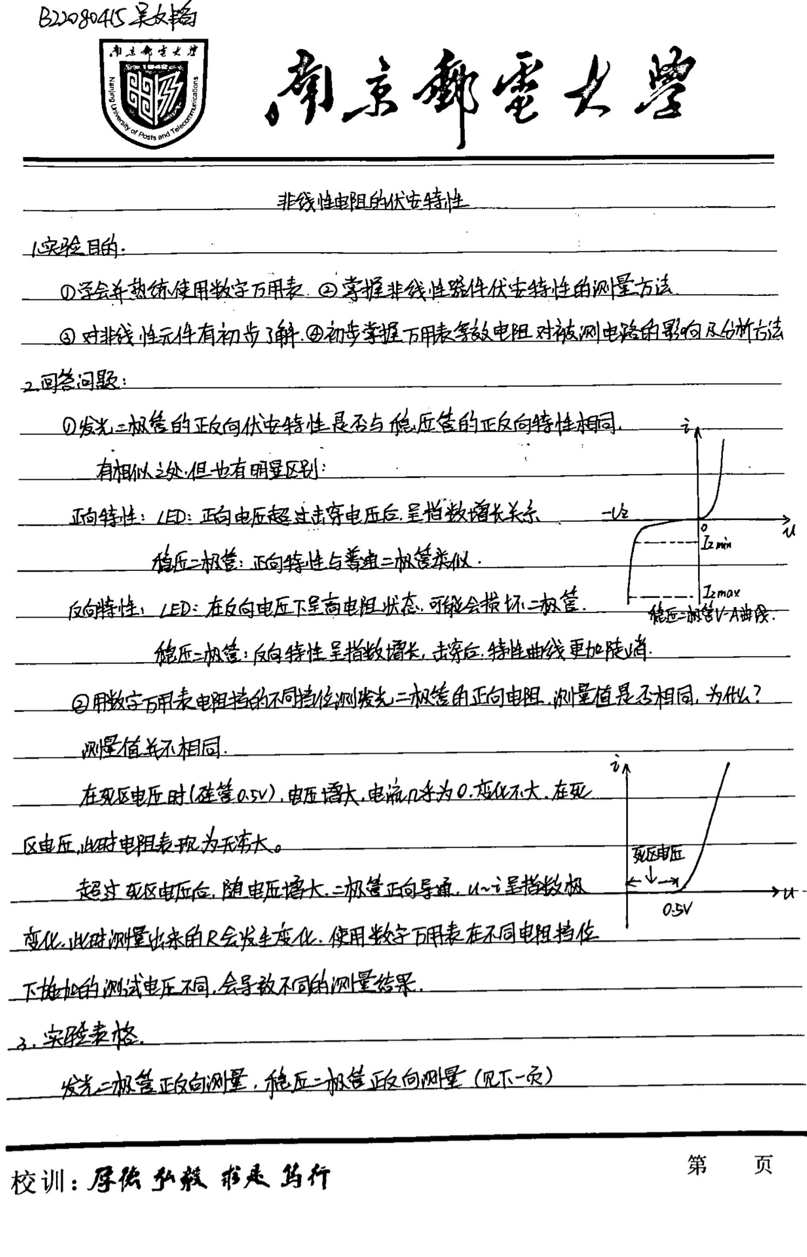 B22080415 吴
南京邮电大学
Nanjing University of Posts and Telecommunications
南京郵電大學
非线性电阻的伏安特性
1.实验目的.
①学会并熟练使用数字万用表. ②掌握非线性器件伏安特性的测量方法.
③对非线性元件有初步了解. ④初步掌握万用表等效电阻对被测电路的影响及分析方法
2.回答问题:
①发光二极管的正反向伏安特性是否与稳压管的正反向特性相同.
有相似之处.但也有明显区别:
正向特性: LED: 正向电压超过击穿电压后.呈指数增长关系
稳压二极管: 正向特性与普通二极管类似.
反向特性: LED: 在反向电压下呈高电阻状态.可能会损坏二极管.
稳压二极管: 反向特性呈指数增长,击穿后.特性曲线更加陡峭.
i
-Uz
0
u
Izmin
Izmax
稳压二极管V-A曲线.
②用数字万用表电阻挡的不同挡位测发光二极管的正向电阻,测量值是否相同,为什么?
测量值并不相同.
在死区电压时(硅管0.5V),电压增大,电流几乎为0.变化不大.在死
区电压,此时电阻表现为无穷大。
超过死区电压后,随电压增大.二极管正向导通. u~i呈指数极
变化.此时测量出来的R会发生变化.使用数字万用表在不同电阻挡位
下施加的测试电压不同.会导致不同的测量结果.
i
死区电压
u
0.5V
3.实验表格.
发光二极管正反向测量,稳压二极管正反向测量(见下一页)
校训: 厚德 弘毅 求是 笃行
第 页